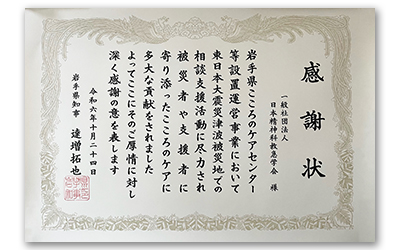 感謝状
一般社団法人
日本精神科救急学会 様
岩手県こころのケアセンター
等設置運営事業において
東日本大震災津波被災地での
相談支援活動に尽力され
被災者や支援者に
寄り添ったこころのケアに
多大な貢献をされました
よってここにそのご厚情に対し
深く感謝の意を表します
令和六年十月二十四日
岩手県知事 達増拓也